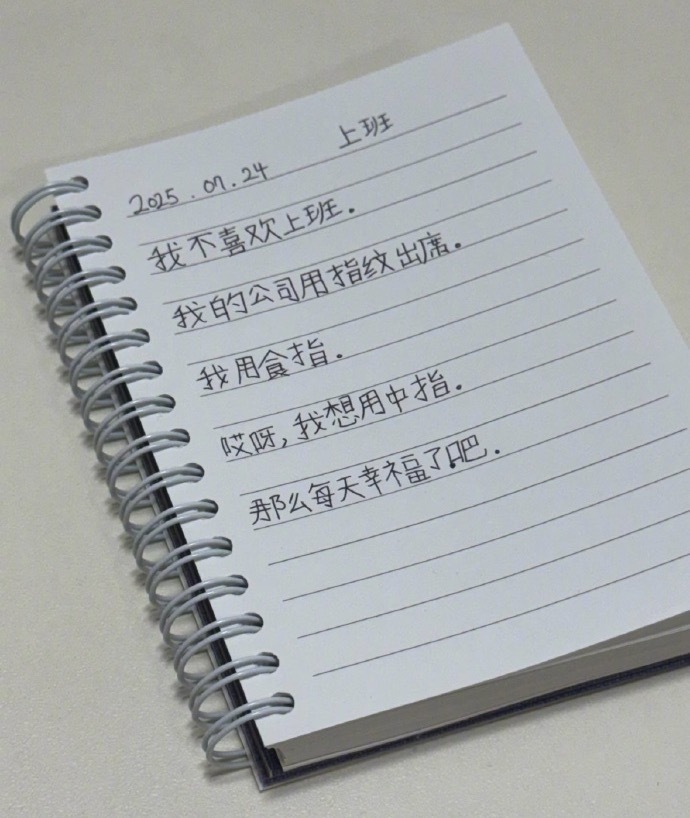 上班
2025.07.24
我不喜欢上班.
我的公司用指纹出席.
我用食指.
哎呀,我想用中指.
那么每天幸福了吧.